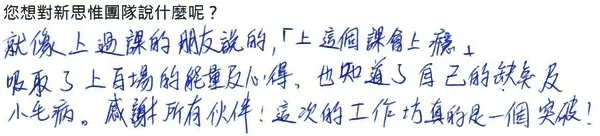 您想對新思惟團隊說什麼呢？
就像上過課的朋友說的，「上這個課會上癮」
吸取了上百場的能量及心得，也知道了自己的缺点及
小毛病。感謝所有伙伴！這次的工作坊真的是一個突破！